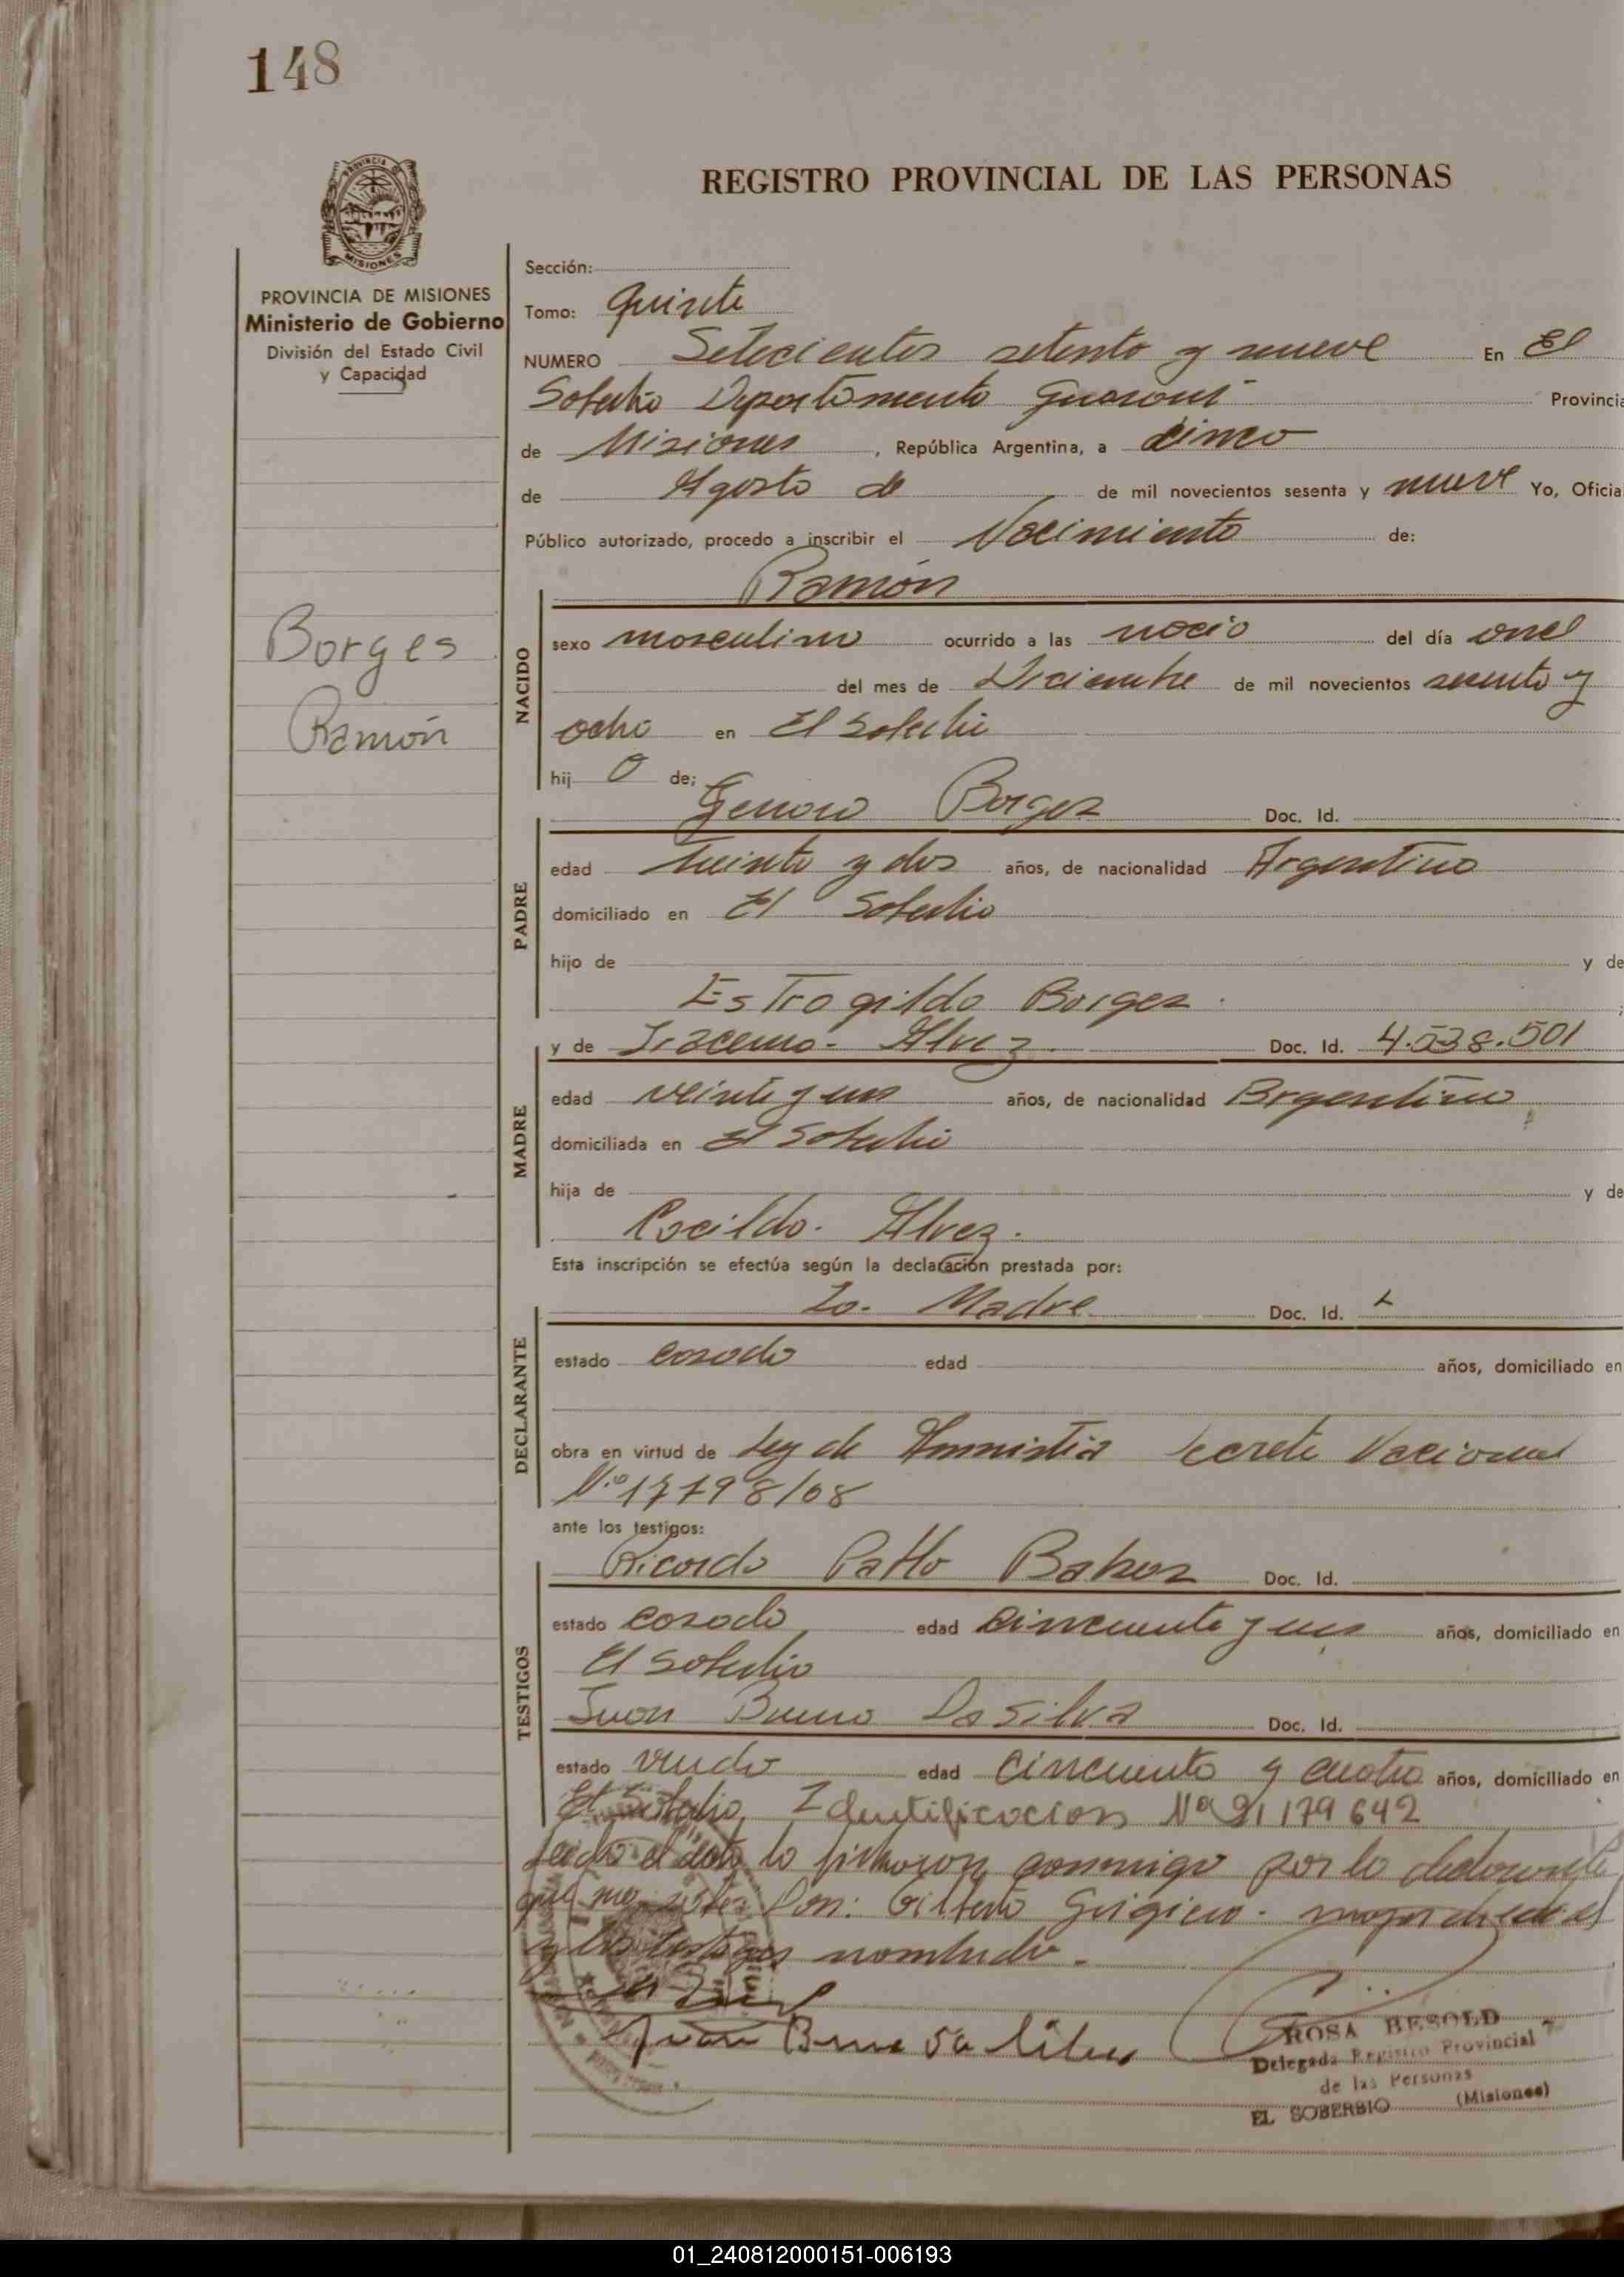 148
PROVINCIA
MISIONES
REGISTRO PROVINCIAL DE LAS PERSONAS
PROVINCIA DE MISIONES
Ministerio de Gobierno
División del Estado Civil
y Capacidad
Borges
Ramón
Sección:
Tomo: Quinto
NUMERO Setecientos setenta y nueve En El
Soberbio Departamento Guaraní Provincia
de Misiones, República Argentina, a cinco
de Agosto de de mil novecientos sesenta y nueve Yo, Oficial
Público autorizado, procedo a inscribir el Nacimiento de:
Ramón
NACIDO
sexo masculino ocurrido a las del día once
del mes de Diciembre de mil novecientos sesenta y
ocho en El Soberbio
hij o de;
Genaro Borges Doc. Id.
PADRE
edad treinta y dos años, de nacionalidad Argentino
domiciliado en El Soberbio
hijo de y de
Estrogildo Borges
y de Iracema Alvez Doc. Id. 4.538.501
MADRE
edad veinte y un años, de nacionalidad Argentina
domiciliada en El Soberbio
hija de y de
Alvez.
Esta inscripción se efectúa según la declaración prestada por:
La Madre Doc. Id.
DECLARANTE
estado casada edad años, domiciliado en
obra en virtud de Ley de Amnistia Nacional
Nº 17798/68
ante los testigos:
Ricardo Pablo Doc. Id.
TESTIGOS
estado casado edad cincuenta y un años, domiciliado en
El Soberbio
Juan Bueno Da Silva Doc. Id.
estado viudo edad cincuenta y cuatro años, domiciliado en
El Soberbio, Identificacion Nº 179642
Leida el acta la firmaron conmigo por la declarante
que no Don: Gilberto mayor de edad
y los testigos nombrado.
Juan
ROSA BESOLD
Delegada Registro Provincial
de las Personas
EL SOBERBIO (Misiones)
01_240812000151-006193